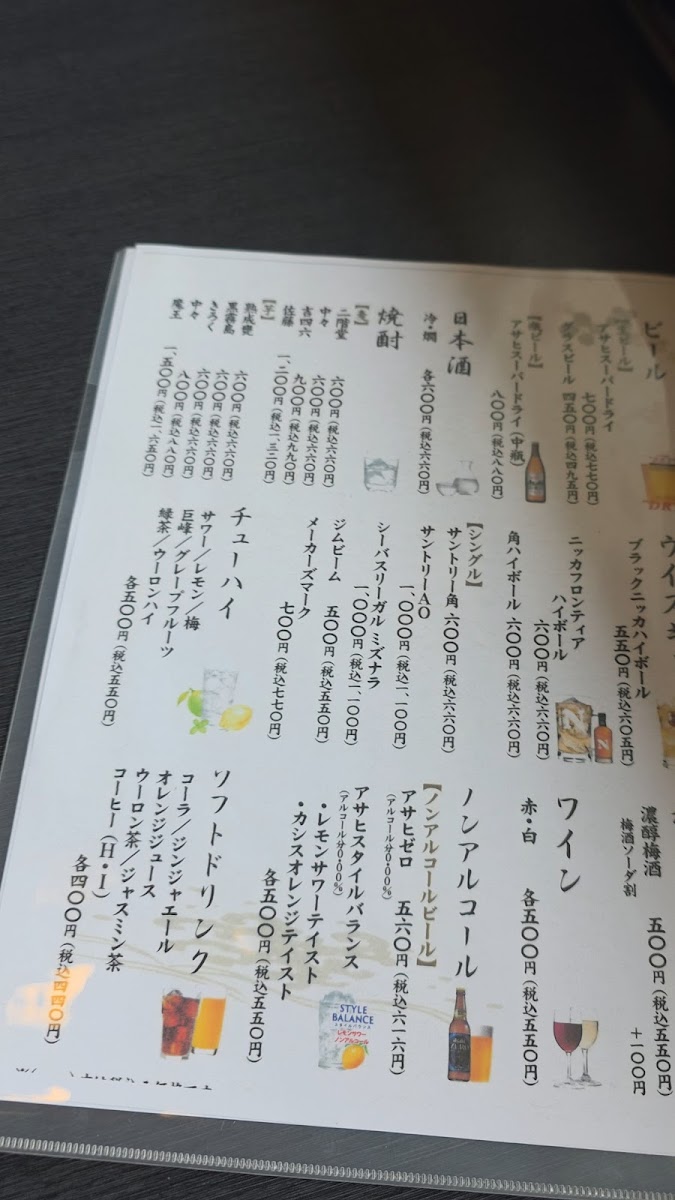 ビール
【生ビール】
アサヒスーパードライ
七〇〇円（税込七七〇円）
グラスビール 四五〇円（税込四九五円）
【瓶ビール】
アサヒスーパードライ（中瓶）
八〇〇円（税込八八〇円）
日本酒
冷・燗 各六〇〇円（税込六六〇円）
焼酎
【麦】
二階堂 六〇〇円（税込六六〇円）
中々 六〇〇円（税込六六〇円）
吉四六 九〇〇円（税込九九〇円）
佐藤 一、二〇〇円（税込一、三二〇円）
【芋】
熟成甕 六〇〇円（税込六六〇円）
黒霧島 六〇〇円（税込六六〇円）
きろく 六〇〇円（税込六六〇円）
中々 八〇〇円（税込八八〇円）
魔王 一、五〇〇円（税込一、六五〇円）
ブラックニッカハイボール
五五〇円（税込六〇五円）
ニッカフロンティア
ハイボール
六〇〇円（税込六六〇円）
角ハイボール 六〇〇円（税込六六〇円）
【シングル】
サントリー角 六〇〇円（税込六六〇円）
サントリーAO
一、〇〇〇円（税込一、一〇〇円）
シーバスリーガル ミズナラ
一、〇〇〇円（税込一、一〇〇円）
ジムビーム 五〇〇円（税込五五〇円）
メーカーズマーク
七〇〇円（税込七七〇円）
チューハイ
サワー／レモン／梅
巨峰／グレープフルーツ
緑茶／ウーロンハイ
各五〇〇円（税込五五〇円）
濃醇梅酒 五〇〇円（税込五五〇円）
梅酒ソーダ割 ＋一〇〇円
ワイン
赤・白 各五〇〇円（税込五五〇円）
ノンアルコール
【ノンアルコールビール】
アサヒゼロ 五六〇円（税込六一六円）
（アルコール分0.00%）
アサヒスタイルバランス
（アルコール分0.00%）
・レモンサワーテイスト
・カシスオレンジテイスト
各五〇〇円（税込五五〇円）
STYLE
BALANCE
レモンサワー
ノンアルコール
ソフトドリンク
コーラ／ジンジャエール
オレンジジュース
ウーロン茶／ジャスミン茶
コーヒー（H・I）
各四〇〇円（税込四四〇円）